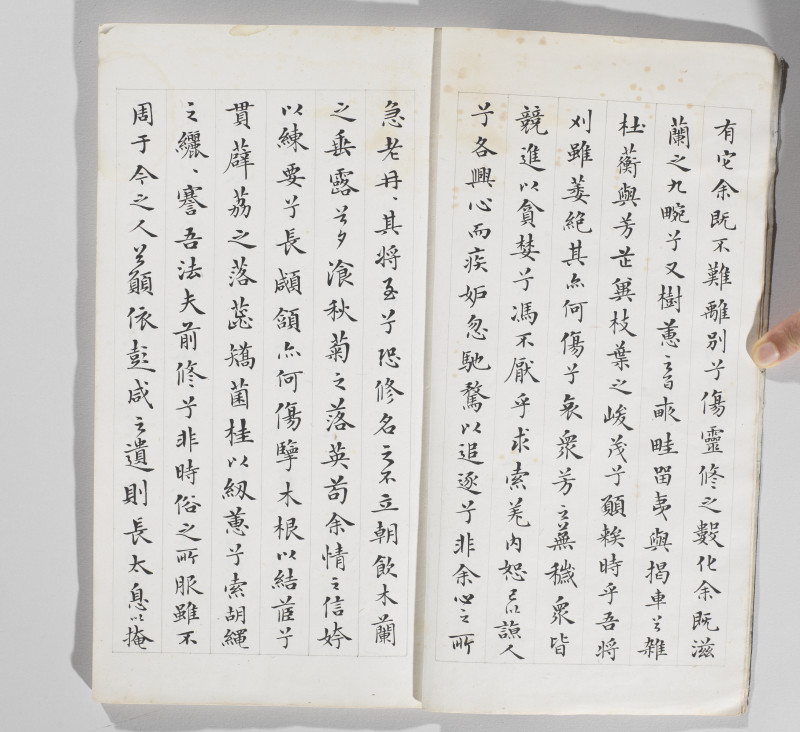 有它余既不難離別兮傷靈修之數化余既滋
蘭之九畹兮又樹蕙之百畝畦留夷與揭車兮雜
杜蘅與芳芷冀枝葉之峻茂兮願竢時乎吾將
刈雖萎絕其亦何傷兮哀衆芳之蕪穢衆皆
競進以貪婪兮馮不厭乎求索羌內恕己以諒人
兮各興心而疾妒忽馳騖以追逐兮非余心之所
急老冉、其將至兮恐修名之不立朝飲木蘭
之垂露兮夕湌秋菊之落英苟余情之信姱
以練要兮長顑頷亦何傷擥木根以結茝兮
貫薜荔之落蕊矯菌桂以紉蕙兮索胡繩
之纚、謇吾法夫前修兮非時俗之所服雖不
周于今之人兮願依彭咸之遺則長太息以掩